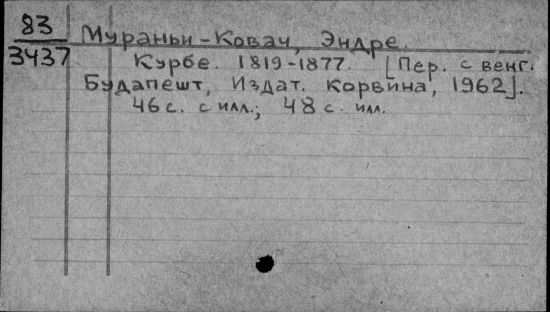 83
3437
Мураньи-Ковач, Эндре.
Курбе. 1819-1877. [Пер. с венг.
Будапешт, Издат. Корвина, 1962].
46 с. с илл.; 48 с. илл.